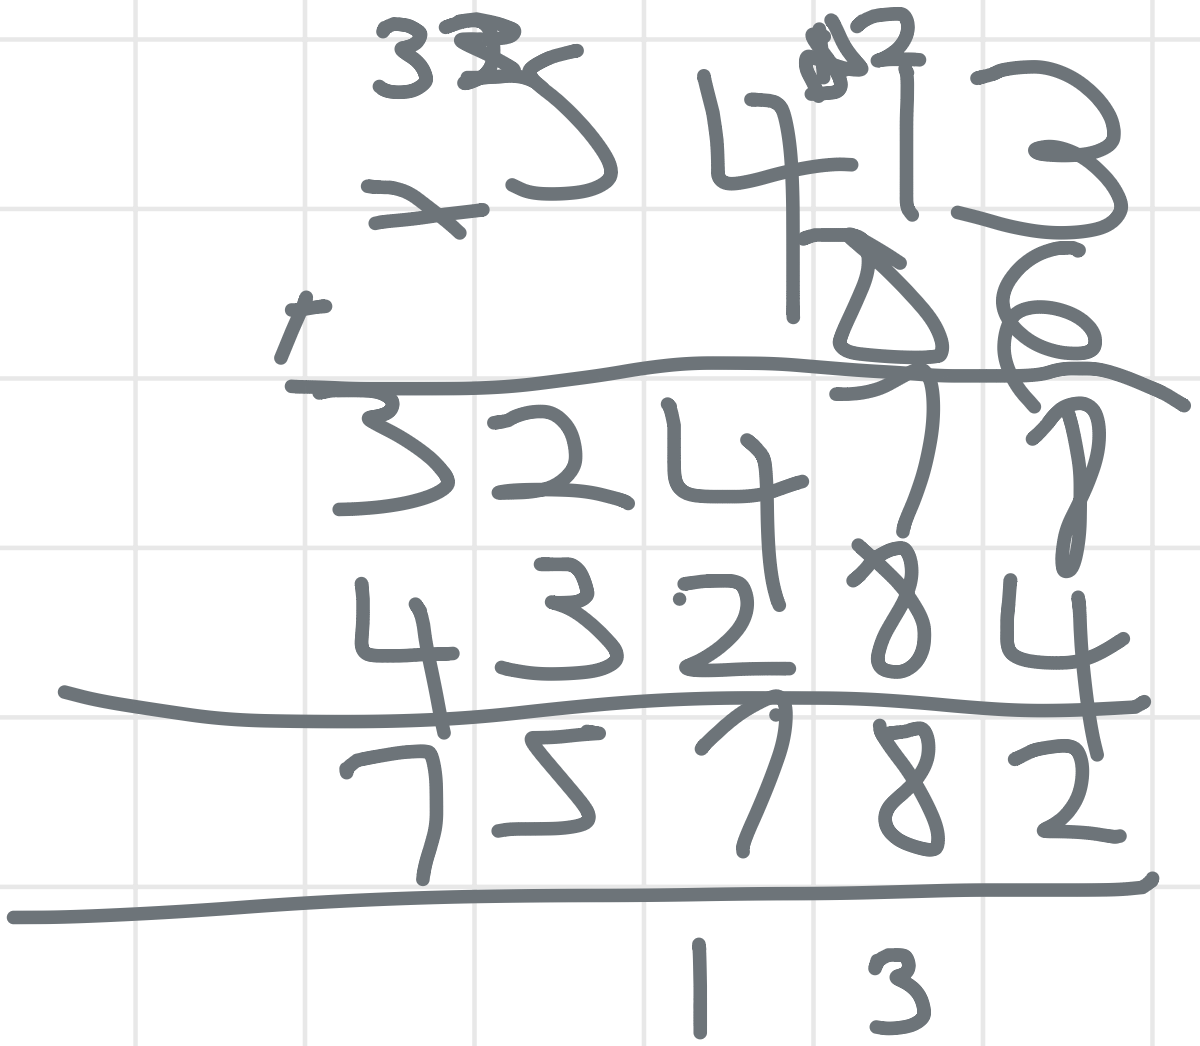 33 2
5413
× 86
+
32478
43284
75782
13